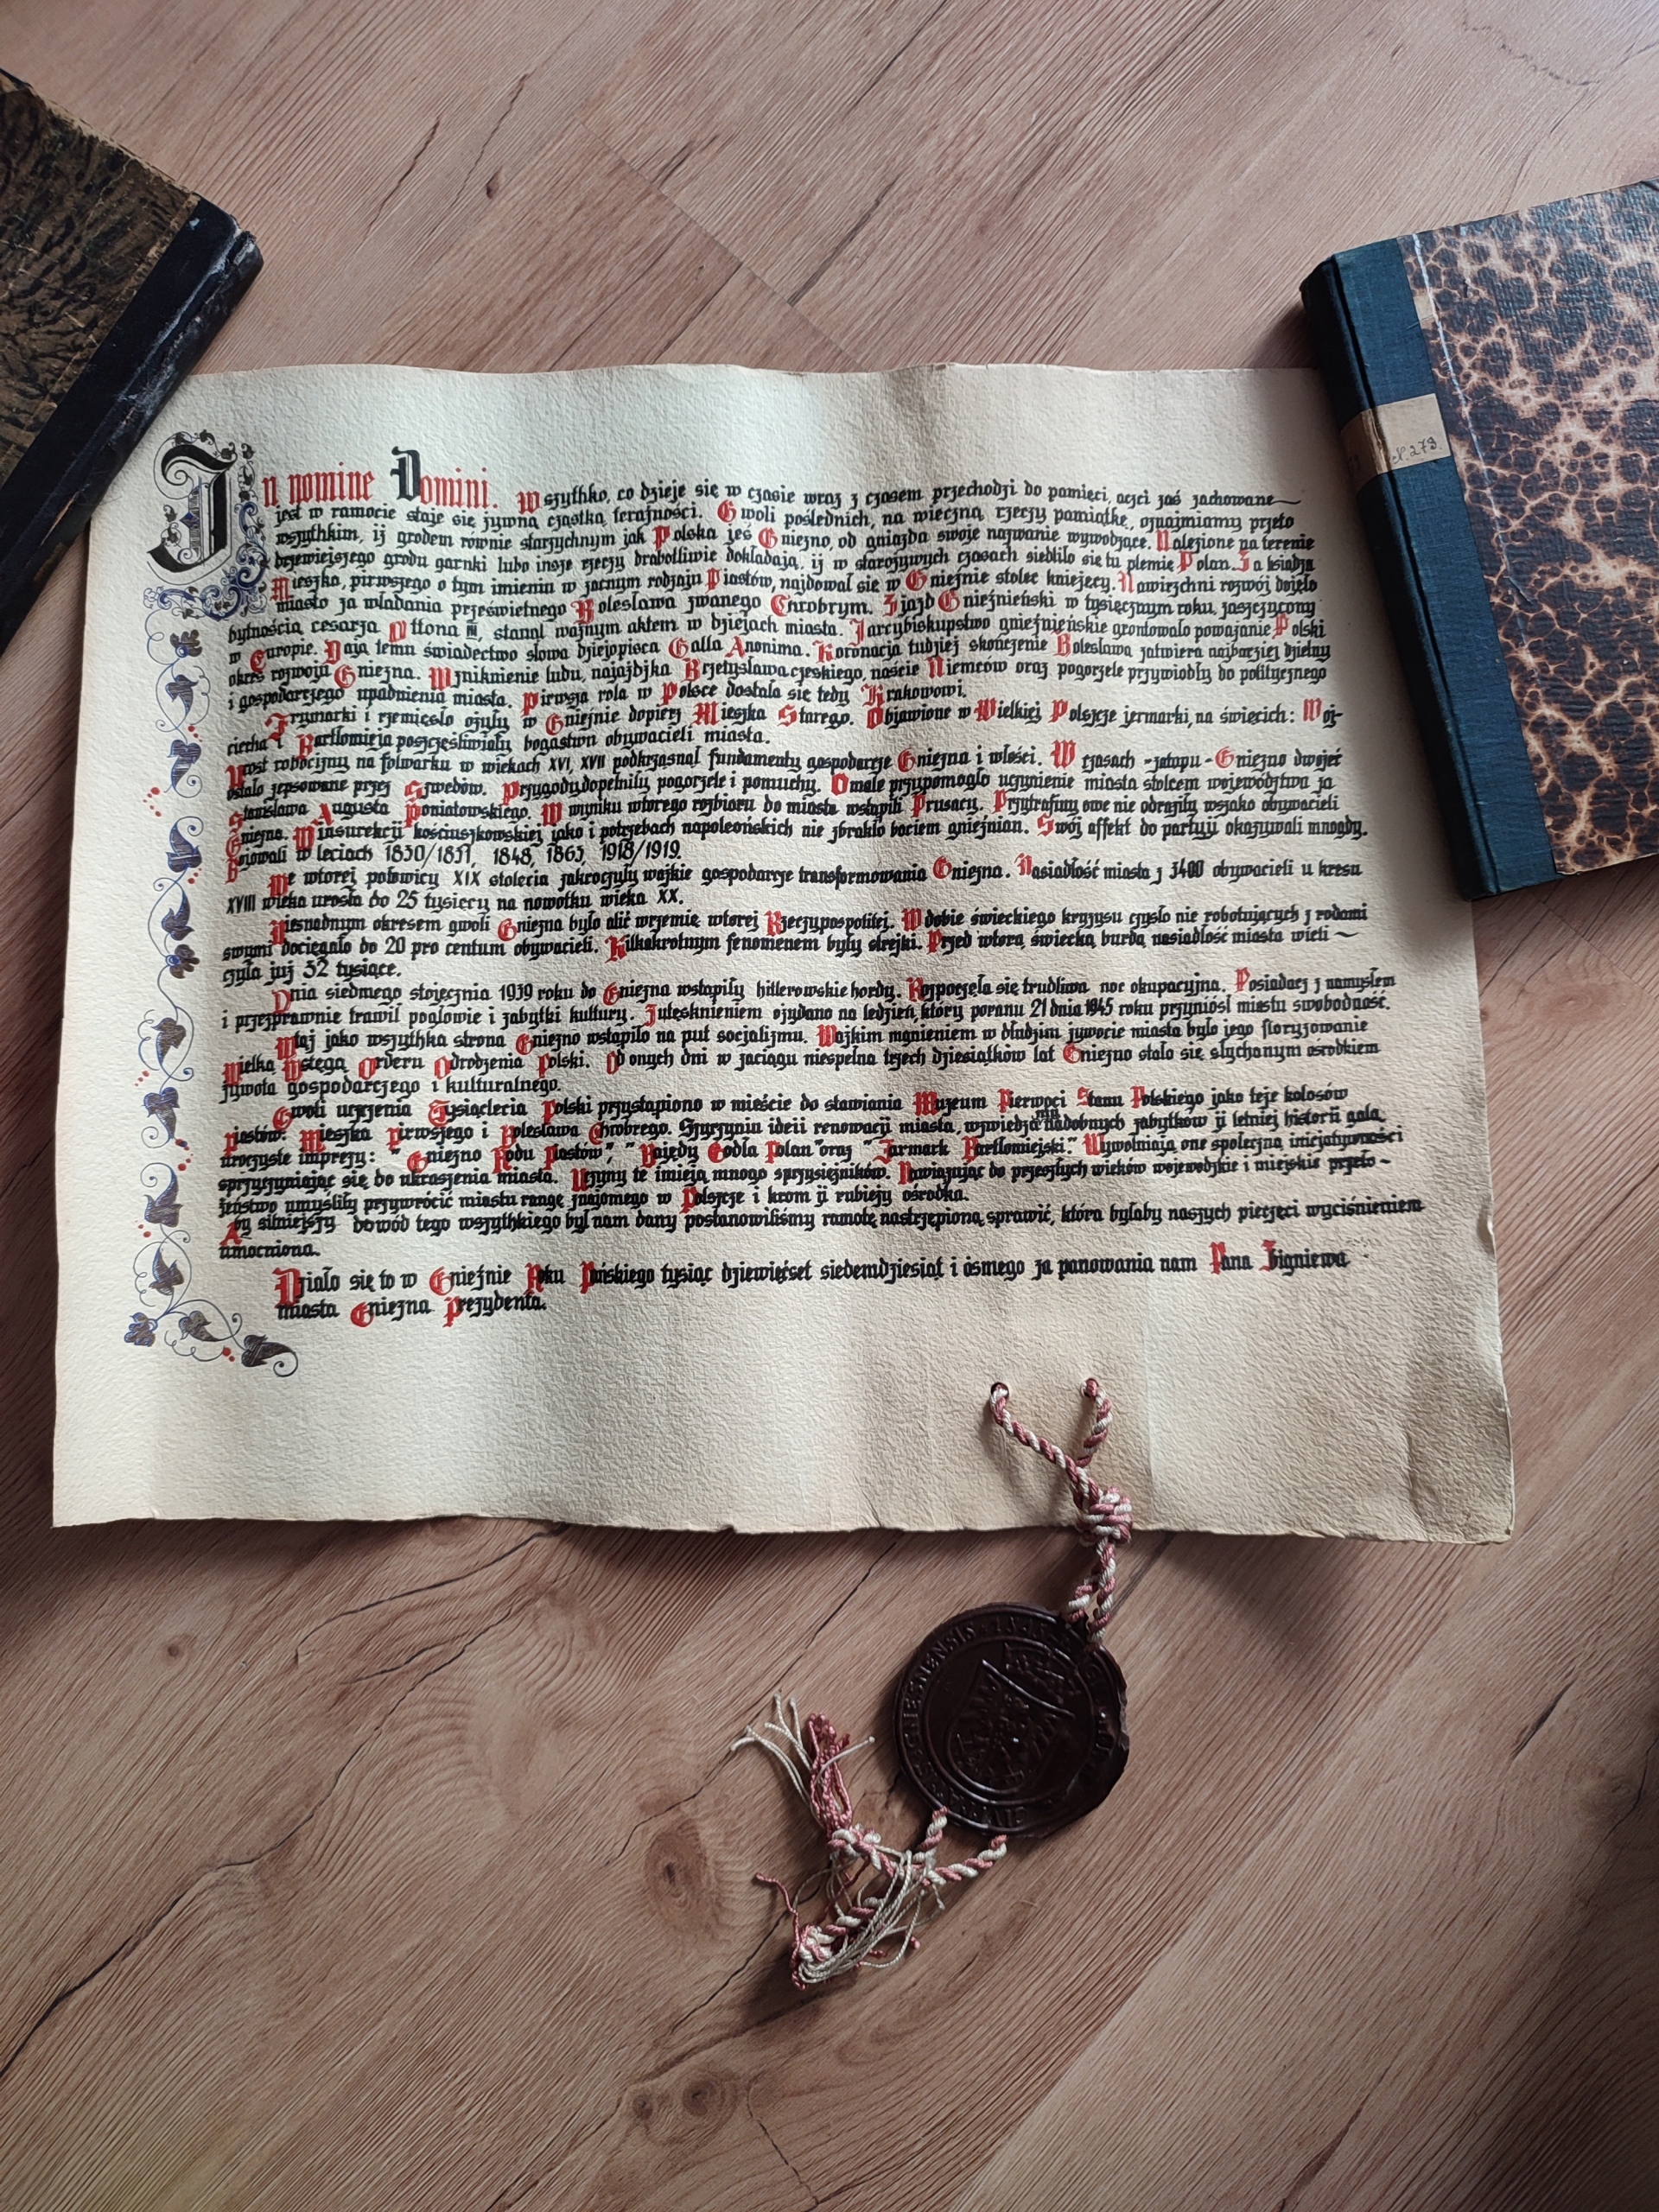 In nomine Domini. Wszythko, co dzieje się w czasie wraz z czasem przechodzi do pamięci, aczci zaś zachowane
jest w ramocie staje się żywną cząstką terażności. Gwoli poślednich, na wieczną rzeczy pamiątkę, oznajmiamy przeto
wszythkim, iż grodem równie starzychnym jak Polska jeś Gniezno, od gniazda swoje nazwanie wywodzące. Nalezione na terenie
drzewiejszego grodu garnki lubo insze rzeczy drabotliwie dokładają, iż w starożywych czasach siedliło się tu plemię Polan. Za książa
Mieszka, pirwszego o tym imieniu w zacnym rodzaju Piastów, najdował się w Gnieźnie stolec kniejęcy. Nawirzchni rozwój dojęło
miasto za władania prześwietnego Bolesława zwanego Chrobrym. Zjazd Gnieźnieński w tysięcznym roku, zaszczycony
bytnością cesarza Ottona III, stanął ważnym aktem w dziejach miasta. Jarcybiskupstwo gnieźnieńskie grontowało poważanie Polski
w Europie. Dają temu świadectwo słowa dziejopisca Galla Anonima. Koronacja tudzież skończenie Bolesława zatwiera najbarziej dzielny
okres rozwoju Gniezna. Wzniknienie ludu, najażdżka Brzetysława czeskiego, naście Niemców oraz pogorzele przywiodły do politycznego
i gospodarczego upadnienia miasta. Pirwsza rola w Polsce dostała się tedy Krakowowi.
Frymarki i rzemięsło ożyły w Gnieźnie dopierz Mieszka Starego. Objawione w Wielkiej Polszcze jermarki, na święcich: Woj-
ciecha i Bartłomieja poszczęśliwiały bogastwu obywacieli miasta.
Urost robocizny na folwarku w wiekach XVI, XVII podkrzasnął fundamenty gospodarcze Gniezna i włości. W czasach -zatopu- Gniezno dwojeć
ostało zepsowane przez Szwedów. Przygody dopełniły pogorzele i pomuchy. Omale przypomogło uczynienie miasta stolcem województwa za
Stanisława Augusta Poniatowskiego. W wyniku wtorego rozbioru do miasta wstąpili Prusacy. Przytrafiny owe nie odrazily wszako obywacieli
Gniezna. W insurekcji kościuszkowskiej jako i potrzebach napoleońskich nie zbrakło bociem gnieźnian. Swój affekt do partyji okazywali mnogdy.
Bojowali w leciach 1830/1831, 1848, 1863, 1918/1919.
We wtorej połowicy XIX stolecia zakroczyły ważkie gospodarcze transformowania Gniezna. Nasiadłość miasta z 3400 obywacieli u kresu
XVIII wieka urosła do 25 tysięcy na nowotku wieka XX.
Niesnadnym okresem gwoli Gniezna było alić wrzemię wtorej Rzeczypospolitej. W dobie świeckiego kryzysu czysło nie robotujących z rodami
swymi dociegało do 20 pro centum obywacieli. Kilkakrotnym fenomenem były strejki. Przed wtorą świecką burdą nasiadłość miasta wieli
czyła już 32 tysiące.
Dnia siedmego stojęcznia 1939 roku do Gniezna wstąpiły hitlerowskie hordy. Rozpoczęła się trudliwa noc okupacyjna. Posiadacz z namysłem
i przezprawnie trawił pogłowie i zabytki kultury. Z utęsknieniem ożydano na ledzień, który poranu 21 dnia 1945 roku przyniósł miastu swobodność.
Wtaj jako wszythka strona Gniezno wstąpiło na put socjalizmu. Ważkim mgnieniem w dłudzim żywocie miasta było jego floryzowanie
Wielką Wstęgą Orderu Odrodzenia Polski. Od onych dni w zaciągu niespełna trzech dziesiątków lat Gniezno stało się słychanym ośrodkiem
żywota gospodarczego i kulturalnego.
Gwoli uczczenia Tysiąclecia Polski przystąpiono w mieście do stawiania Muzeum Pierwoci Stanu Polskiego jako też kolosów
piastów: Mieszka Pirwszego i Bolesława Chrobrego. Szyrzyniu ideii renowacji miasta, wzwiedza nin nadobnych zabytków ij letniej historii gala,
uroczyste imprezy: "Gniezno Rodu Piastów", "Biesiady Godła Polan" oraz "Jarmark Bartłomiejski". Wyzwolniają one społeczną inicjatywności
sprzyczyniając się do ukraszenia miasta. Uczyny te imieją mnogo sprzysiężników. Nawiązując do przeszłych wieków wojewodzkie i miejskie przeło-
żeństwo umyśliły przywrócić miastu rangę znajomego w Polszcze i krom ij rubieży ośrodka.
Aby silniejszy dowód tego wszythkiego był nam dany postanowiliśmy ramotę nastrzępioną sprawić, która byłaby naszych pieczęci wyciśnieniem
umocniona.
Działo się to w Gnieźnie Roku Pańskiego tysiąc dziewięćset siedemdziesiąt i ósmego za panowania nam Pana Zbigniewa
miasta Gniezna Prezydenta.
N. 279.
GNESNENSIS